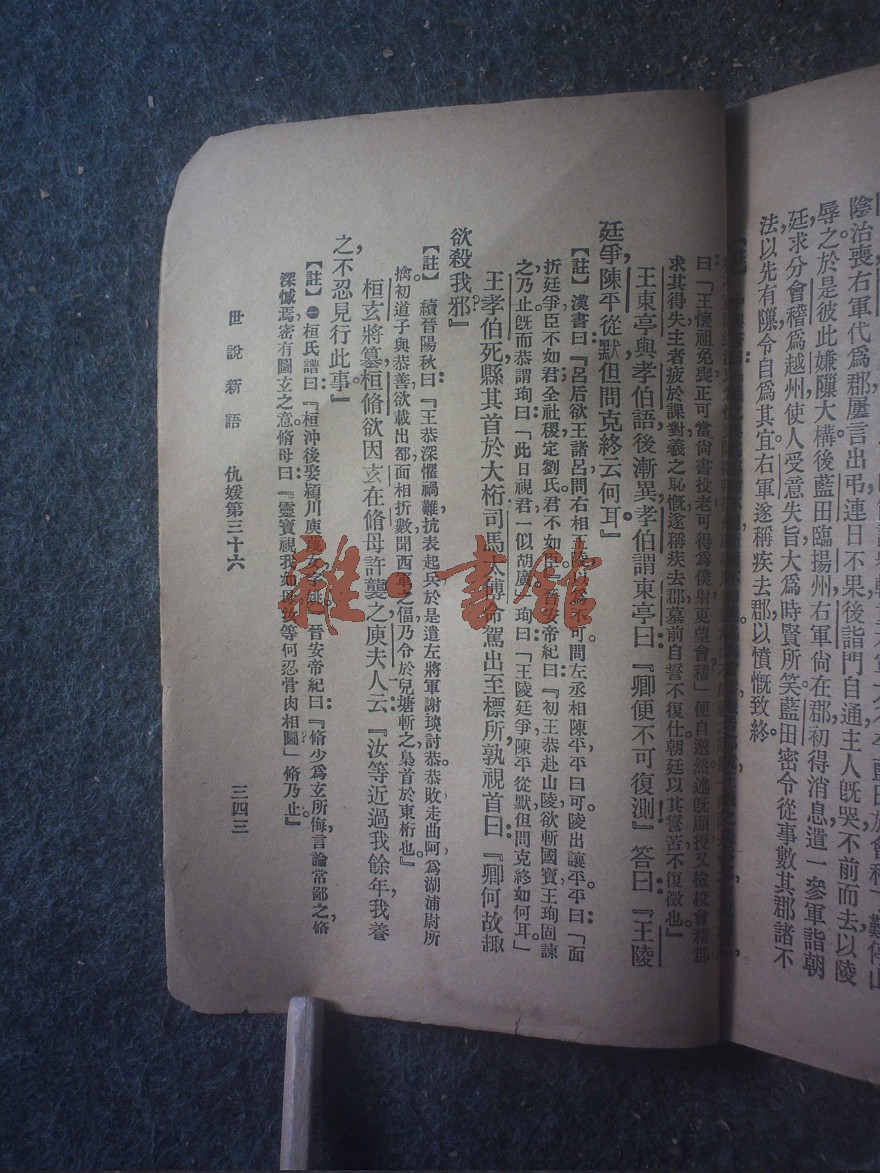 陰治喪右軍代爲郡屢言出弔連日不果後詣門自通主人旣哭不前而去以陵
辱之於是彼此嫌隟大構後藍田臨揚州右軍尙在郡初得消息遣一參軍詣朝
廷求分會稽爲越州使人受意失旨大爲時賢所笑藍田密令從事數其郡諸不
法以先有隟令自爲其宜右軍遂稱疾去郡以憤慨致終。
曰：「王懷祖免喪正可當尙書投老可得爲僕射更望會稽」便自邈然述旣顯授又檢校會稽郡
求其得失主者疲於課對羲之恥慨遂稱疾去郡墓前自誓不復仕朝廷以其誓苦不復徵也。』
王東亭與孝伯語後漸異孝伯謂東亭曰：『卿便不可復測！』答曰：『王陵
廷爭，陳平從默，但問克終云何耳。』
【註】漢書曰：『呂后欲王諸呂問右相王陵以爲不可問左丞相陳平平曰可。陵出讓平平曰：「面
折廷爭臣不如君全社稷定劉氏君不如臣」』晉安帝紀曰：『初王恭赴山陵欲斬國寶王珣固諫
之乃止旣而恭謂珣曰：「此日視君一似胡廣。」珣曰：「王陵廷爭陳平從默但問克終如何耳。」』
王孝伯死縣其首於大桁司馬太傅命駕出至標所孰視首曰：『卿何故趣
欲殺我邪？』
【註】續晉陽秋曰：『王恭深懼禍難抗表起兵於是遣左將軍謝琰討恭。恭敗走曲阿爲湖浦尉所
擒。初道子與恭善欲載出都面相折數聞西軍之偪乃令於兒塘斬之梟首於東桁也。』
桓玄將篡桓脩欲因玄在脩母許襲之庾夫人云：『汝等近過我餘年，我養
之，不忍見行此事。』
【註】㊀桓氏譜曰：『桓沖後娶潁川庾蔑女字姚』晉安帝紀曰：『脩少爲玄所侮，言論常鄙之，脩
深憾焉密有圖玄之意。脩母曰：「靈寶視我如母汝等何忍骨肉相圖？」脩乃止。』
世說新語 仇嫒第三十六 三四三
雜·書館